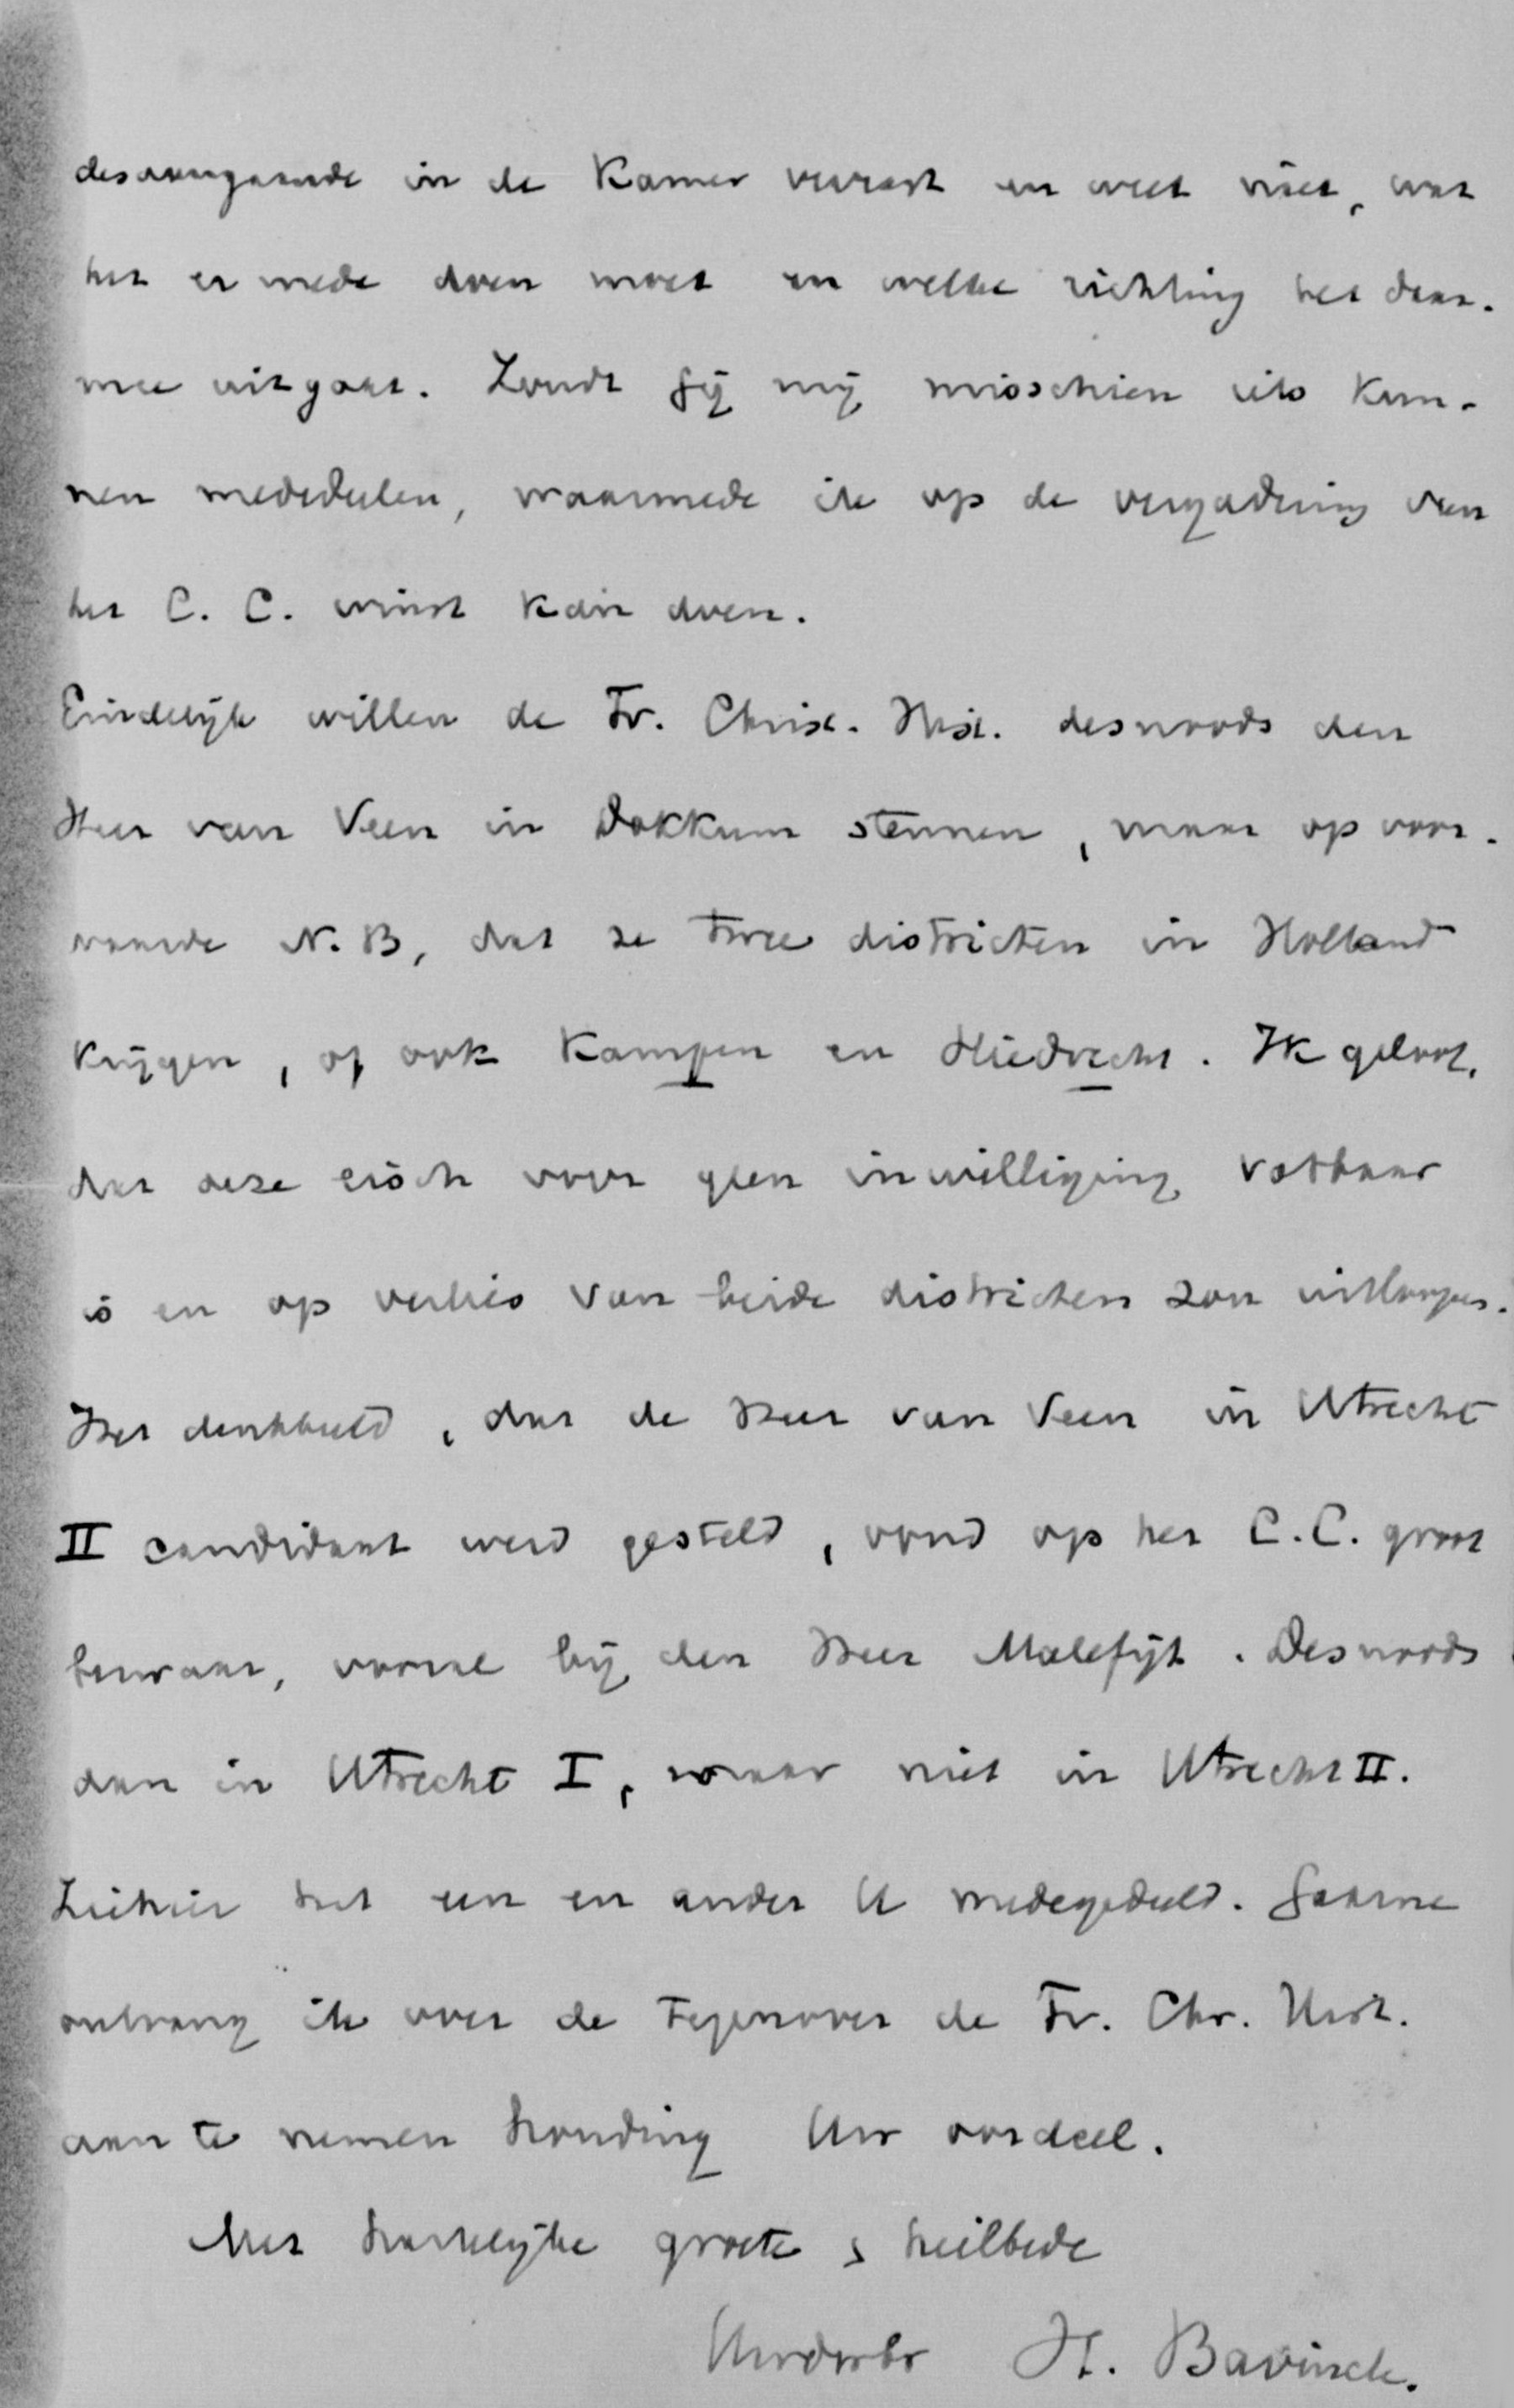 desaangaande in de Kamer verrast en weet niet, wat
het er mede doen moet en welke richting het daar-
mee uitgaat. Zoudt Gij mij misschien iets kun-
nen mededeelen, waarmede ik op de vergadering van
het C. C. winst kan doen.
Eindelijk willen de Fr. Christ. Hist. desnoods den
Heer van Veen in Dokkum steunen, maar op voor-
waarde N.B, dat ze twee districten in Holland
krijgen, of ook Kampen en Sliedrecht. Ik geloof,
dat deze eisch voor geen inwilliging vatbaar
is en op verlies van beide districten zou uitloopen.
Het denkbeeld, dat de Heer van Veen in Utrecht
II candidaat werd gesteld, vond op het C.C. groot
bezwaar, vooral bij den Heer Malefijt. Desnoods
dan in Utrecht I, maar niet in Utrecht II.
Ziehier het een en ander U medegedeeld. Gaarne
ontvang ik over de tegenover de Fr. Chr. Hist.
aan te nemen houding Uw oordeel.
Met hartelijke groete & heilbede
Uwdwbr H. Bavinck.